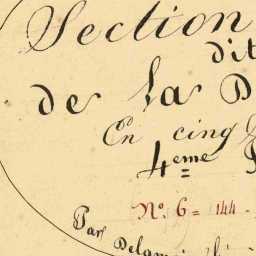 Section
dit
de la D
En cinq
4eme
N° 6 = 144
Par